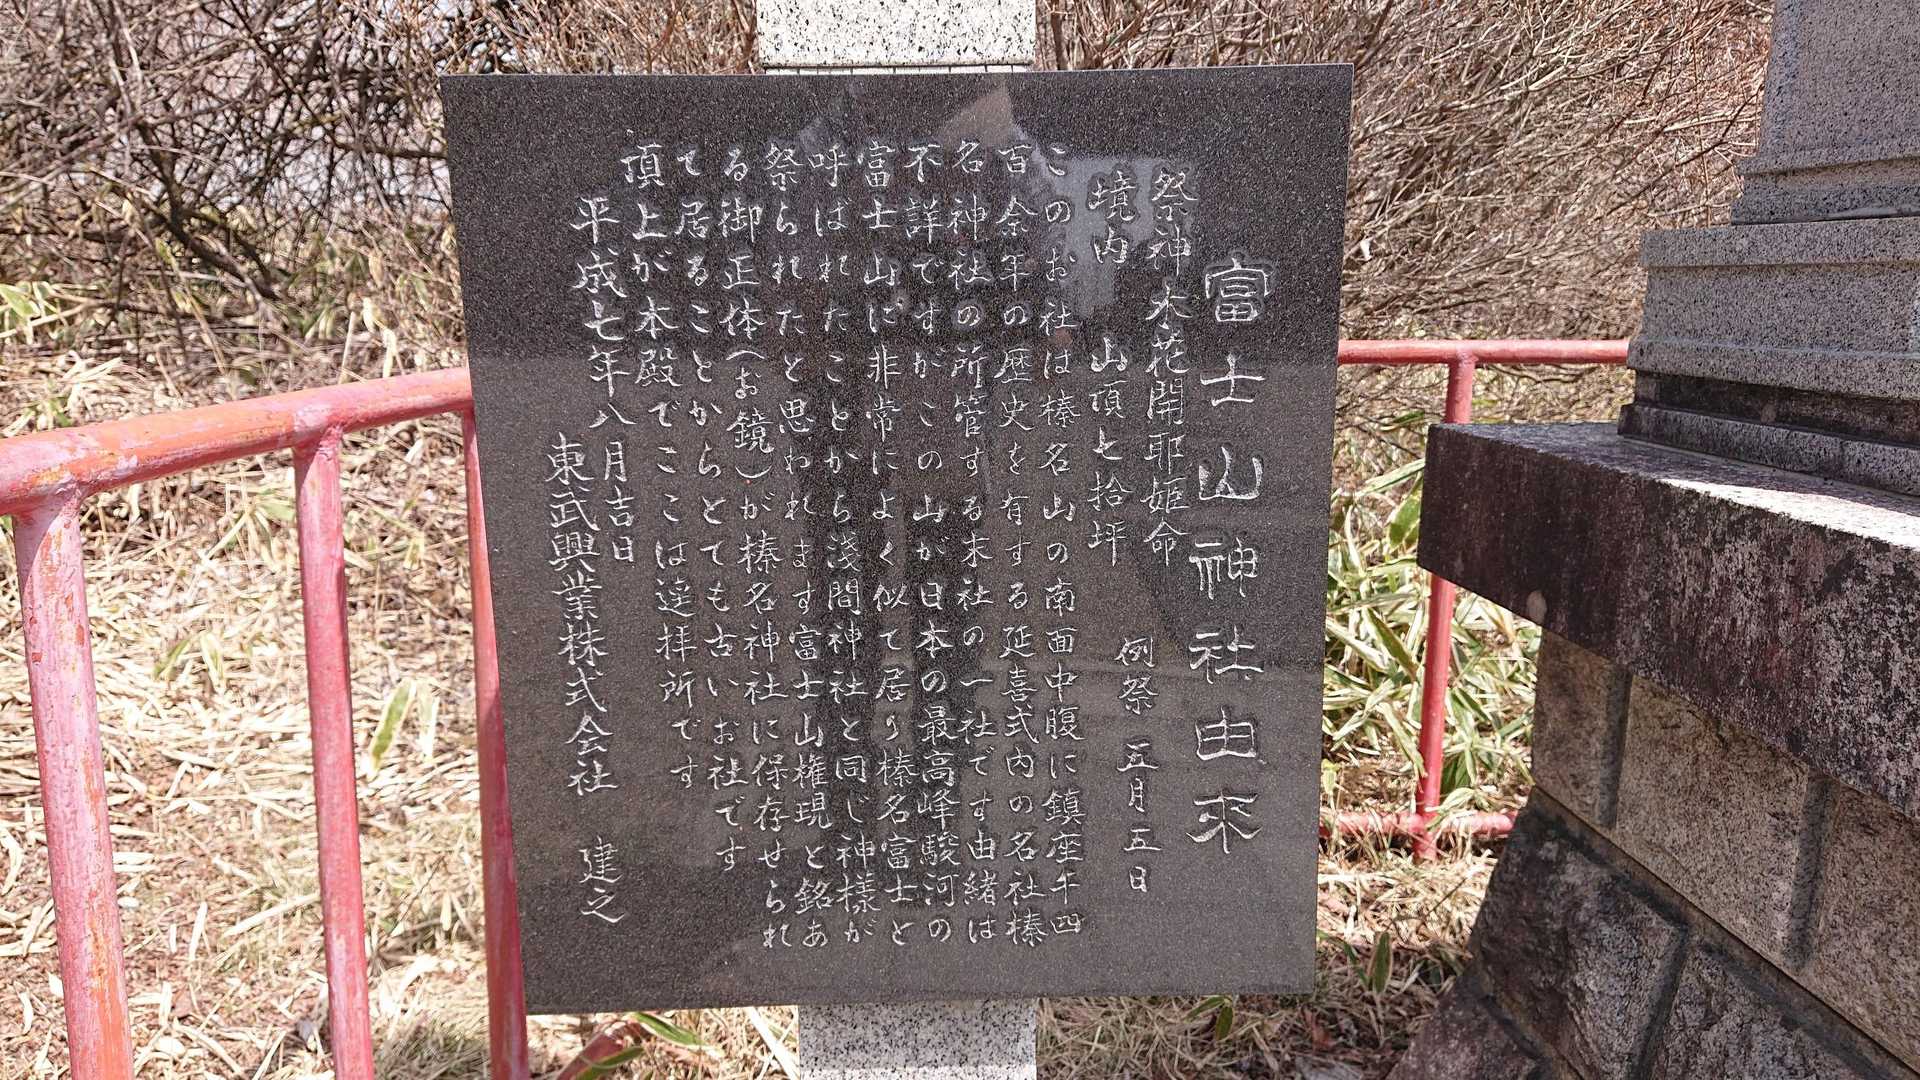 富士山神社由来
祭神 木花開耶姫命
境内 山頂七拾坪 例祭 五月五日
このお社は榛名山の南面中腹に鎮座千四
百余年の歴史を有する延喜式内の名社榛
名神社の所管する末社の一社です由緒は
不詳ですがこの山が日本の最高峰駿河の
富士山に非常によく似て居り榛名富士と
呼ばれたことから浅間神社と同じ神様が
祭られたと思われます富士山権現と銘あ
る御正体(お鏡)が榛名神社に保存せられ
て居ることからとても古いお社です
頂上が本殿でここは遥拝所です
平成七年八月吉日
東武興業株式会社 建之